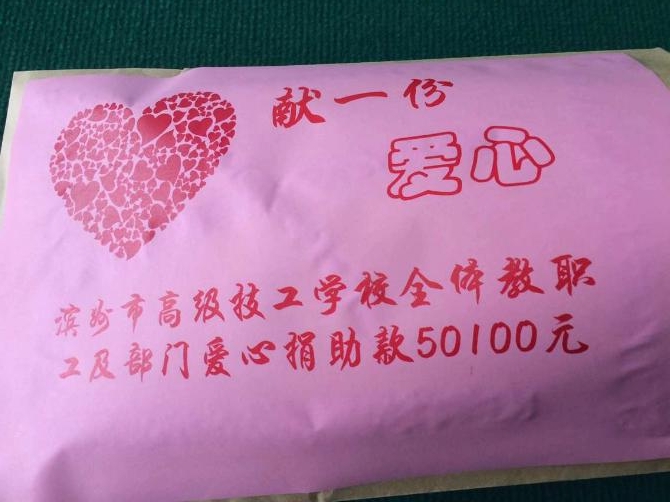 献一份
爱心
滨州市高级技工学校全体教职
工及部门爱心捐助款50100元